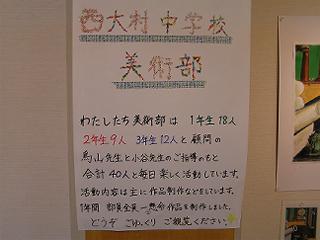 西大村中学校
美術部
わたしたち美術部は 1年生18人
2年生9人 3年生12人と顧問の
馬山先生と小谷先生のご指導のもと
合計40人と毎日楽しく活動しています。
活動内容は主に作品制作などをしています。
1年間 部員全員一懸命作品を制作しました。
どうぞ ごゆっくり ご観覧ください。